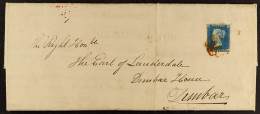 The Right Honble
The Earl of Lauderdale
Dunbar House
Dunbar